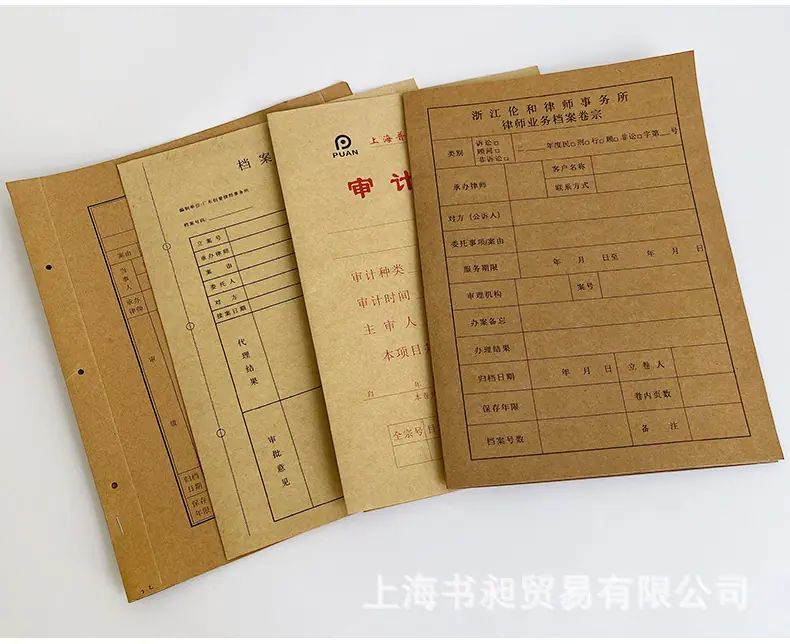 浙江伦和律师事务所
律师业务档案卷宗
类别
诉讼□
顾问□
非诉讼□
二 年度民□刑□行□顾□非讼□字第 号
承办律师
客户名称
联系方式
对方（公诉人）
委托事项/案由
服务期限
年 月 日至 年 月 日
审理机构
案号
办案备忘
办理结果
归档日期
年 月 日
立卷人
保存年限
卷内页数
档案号数
备 注
PUAN
上海普
审计
审计种类
审计时间
主审人
本项目
自 年
本卷
全宗号
目
档案
档案号码:
立案号
承办律师
案由
委托人
对方
接案日期
代理结果
审批意见
案由
当事人
承办律师
审
级
归档日期
保存年限
上海书昶贸易有限公司